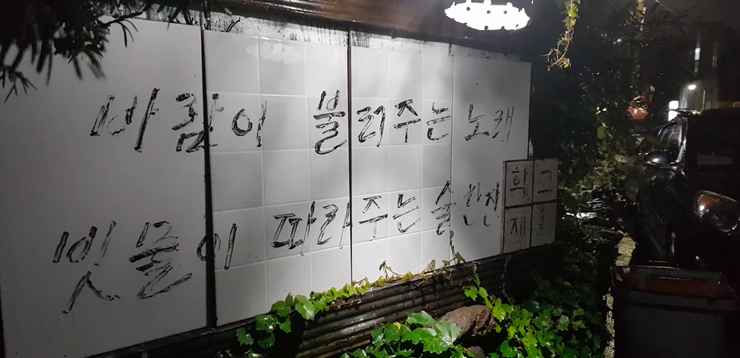 바람이 불러주는 노래
빗물이 따라주는 술 한잔